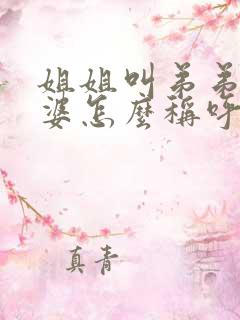 姐姐叫弟弟
婆怎麼稱呼
真青